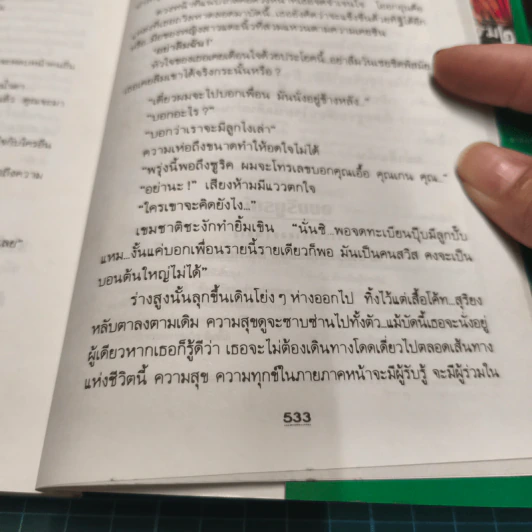 "อย่าลืมฉัน!"
"เดี๋ยวผมจะไปบอกเพื่อน มันนั่งอยู่ข้างหลัง.."
"บอกอะไร ?"
"บอกว่าเราจะมีลูกไงเล่า"
ความเห่อถึงขนาดทำให้อดใจไม่ได้
"พรุ่งนี้พอถึงซูริค ผมจะโทรเลขบอกคุณเอื้อ คุณเกน คุณ.."
"อย่านะ!" เสียงห้ามมีแววตกใจ
"ใครเขาจะคิดยังไง..."
เขมชาติชะงักทำยิ้มเขิน "นั่นซิ...พอจดทะเบียนปุ๊บมีลูกปั๊บ
แหม...งั้นแค่บอกเพื่อนรายนี้รายเดียวก็พอ มันเป็นคนสวิส คงจะเป็น
บอนต้นใหญ่ไม่ได้"
ร่างสูงนั้นลุกขึ้นเดินโย่ง ๆ ห่างออกไป ทิ้งไว้แต่เสื้อโค้ท...สุริยง
หลับตาลงตามเดิม ความสุขดูจะซาบซ่านไปทั้งตัว...แม้บัดนี้เธอจะนั่งอยู่
ผู้เดียวหากเธอก็รู้ดีว่า เธอจะไม่ต้องเดินทางโดดเดี่ยวไปตลอดเส้นทาง
แห่งชีวิตนี้ ความสุข ความทุกข์ในภายภาคหน้าจะมีผู้รับรู้ จะมีผู้ร่วมใน
533